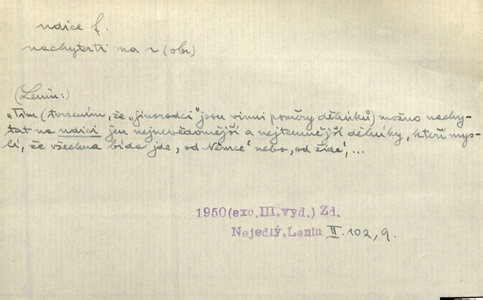 udice f.
nachytati na u (obr.)
(Lenin:)
„Tím (tvrzením, že „jinorodci“ jsou vinni poměry dělníků) možno nachy-
tat na udici jen nejnevědomější a nejtemnější dělníky, kteří mys-
lí, že všechna bída jde ‚od Němce‘ nebo ‚od žida‘,...
1950(exc.III.vyd.) Zd.
Nejedlý,Lenin II. 102,9.